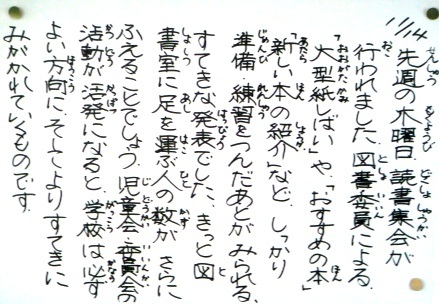 11/14
先週の木曜日、読書集会が
行われました。図書委員による
「大型紙しばい」や、「おすすめの本」
「新しい本の紹介」など、しっかり
準備・練習をつんだあとがみられる、
すてきな発表でした。きっと図
書室に足を運ぶ人の数が、さらに
ふえることでしょう。児童会・委員会の
活動が活発になると、学校は必ず
よい方向に、そしてよりすてきに
みがかれているものです。